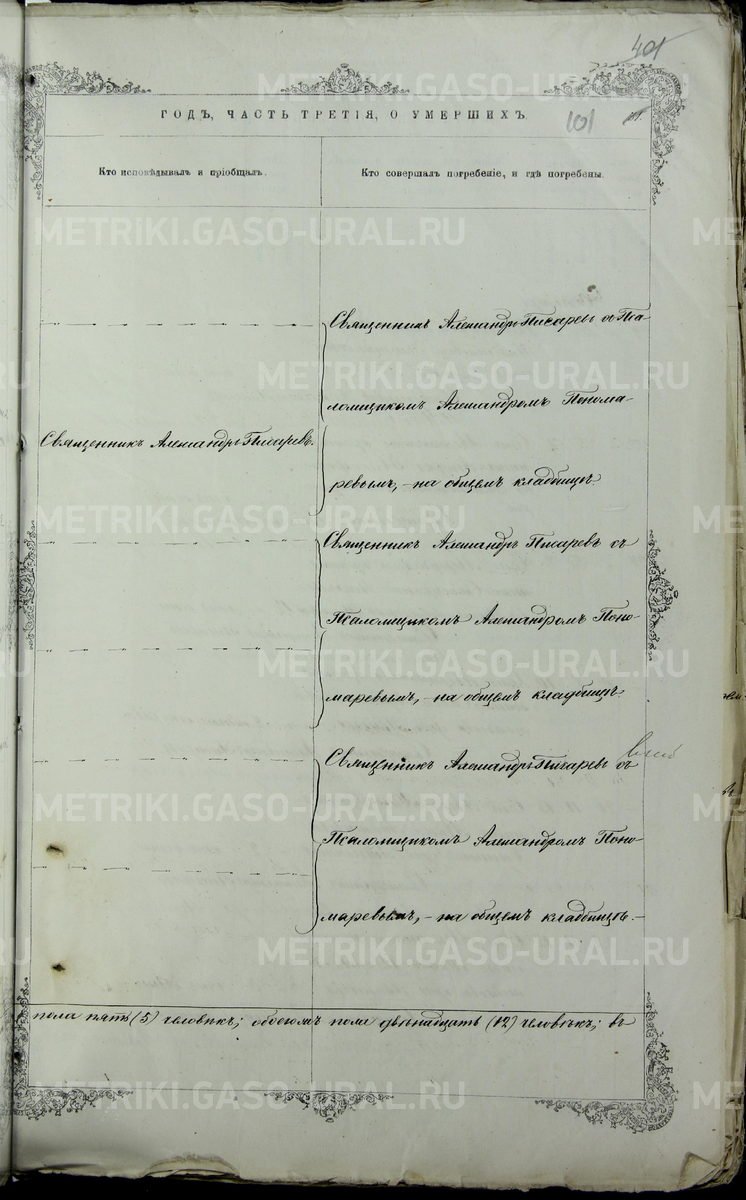 401
ГОДЪ, ЧАСТЬ ТРЕТІЯ, О УМЕРШИХЪ.
101
Кто исповѣдывалъ и пріобщалъ.
Кто совершалъ погребеніе, и гдѣ погребены.
Священникъ Александръ Писаревъ съ Пса-
ломщикомъ Александромъ Понома-
Священникъ Александръ Писаревъ.
ревымъ, - на общемъ кладбищѣ.
Священникъ Александръ Писаревъ съ
Псаломщикомъ Александромъ Поно-
маревымъ, - на общемъ кладбищѣ.
Священникъ Александръ Писаревъ съ
Псаломщикомъ Александромъ Поно-
маревымъ, - на общемъ кладбищѣ. -
пола пять (5) человѣкъ; обоего пола двѣнадцать (12) человѣкъ; въ
METRIKI.GASO-URAL.RU